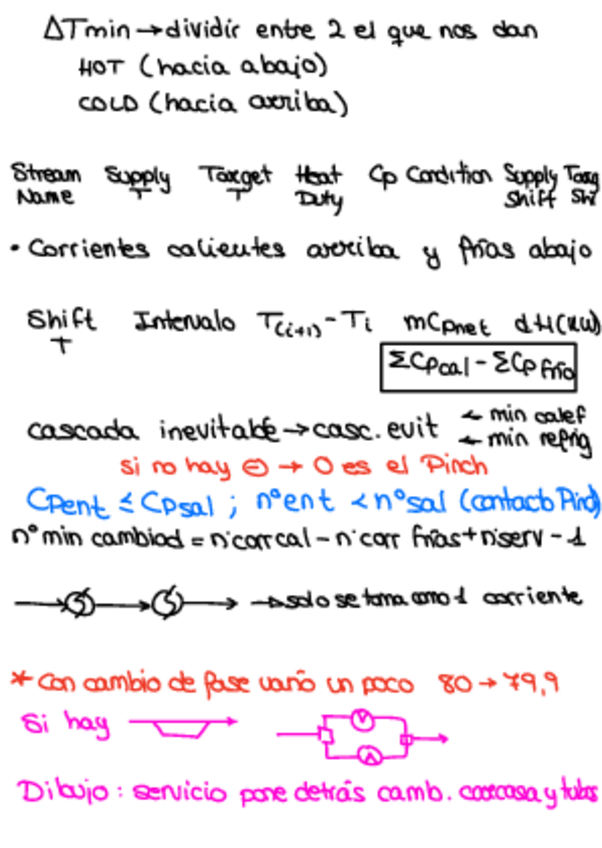 ΔTmin → dividir entre 2 el que nos dan
HOT (hacia abajo)
COLD (hacia arriba)
Stream Supply Target Heat Cp Condition Supply Targ
Name T T Duty Shift Shi
• Corrientes calientes arriba y frías abajo
Shift Intervalo T(i+1) - Ti mCpnet dH(kW)
T
ΣCpcal - ΣCp frío
cascada inevitable → casc. evit ← min calef
← min refrig
si no hay ⊖ → 0 es el Pinch
CPent ≤ CPsal ; nºent < nºsal (contacto Pinch)
nº min cambiad = n·corr cal - n·corr frías + n·serv - 1
→ solo se toma como 1 corriente
* Con cambio de fase vario un poco 80 → 79,9
Si hay
Dibujo : servicio pone detrás camb. carcasa y tubos